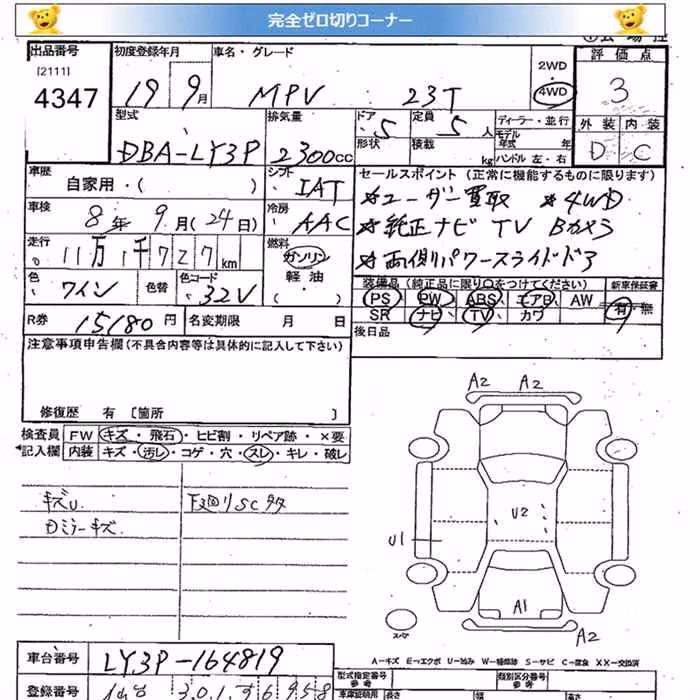 完全ゼロ切りコーナー
出品番号 初度登録年月 車名・グレード 2WD 評価点
[2111] 4347 19 9月 MPV 23T 4WD 3
型式 排気量 ドア 5 定員 5人 ディーラー・並行 外装 内装
形状 積載 kg モデル年式 年
DBA-LY3P 2300cc ハンドル 左・右 D C
車歴 自家用・( ) シフト IAT セールスポイント(正常に機能するものに限ります)
☆ユーザー買取 ☆4WD
車検 8年 9月(24日) 冷房 AAC ☆純正ナビ TV Bカメラ
走行 11万1千727km 燃料 ガソリン 軽油・( ) ☆両側パワースライドドア
色 ワイン 色替 色コード 32V
装備品(純正品に限り○をつけてください) 新車保証書
PS PW ABS エアB AW 有・無
SR ナビ TV カワ
R券 15180円 名変期限 月 日 後日品
注意事項申告欄(不具合内容等は具体的に記入して下さい)
修復歴 有 [箇所 ]
検査員記入欄 FW キズ・飛石・ヒビ割・リペア跡・×要
内装 キズ・汚レ・コゲ・穴・スレ・キレ・破レ
キズU 下廻りSCサタ
Dミラーキズ
A2 A2
U2
U1
A1
A2
スペア
A-キズ E-エクボ U-凹み W-補修跡 S-サビ C-腐食 XX-交換済
車台番号 LY3P-164819
型式指定番号 参考 類別区分番号 参考
登録番号 301 車庫証明用 参考 長さ 幅 高さ